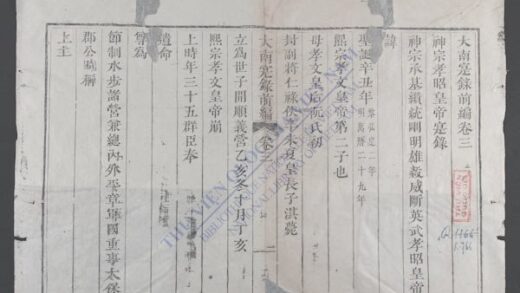 大南寔錄前編卷三
神宗孝昭皇帝寔錄
神宗承基纘統剛明雄毅威斷英武孝昭皇帝
諱
聖誕辛丑年 黎弘定二年明萬曆二十九年
熙宗孝文皇帝第二子也
母孝文皇后阮氏初
封副將仁祿侯 皇長子淇薨
大南寔錄前編 卷三 一
立為世子開順義營乙亥冬十月丁亥
熙宗孝文皇帝崩
上時年三十五群臣奉
遺命
尊為
節制水步諸營兼總內外平章軍國重事太保
郡公
上主
THƯ VIỆN QUỐC GIA VIỆT NAM